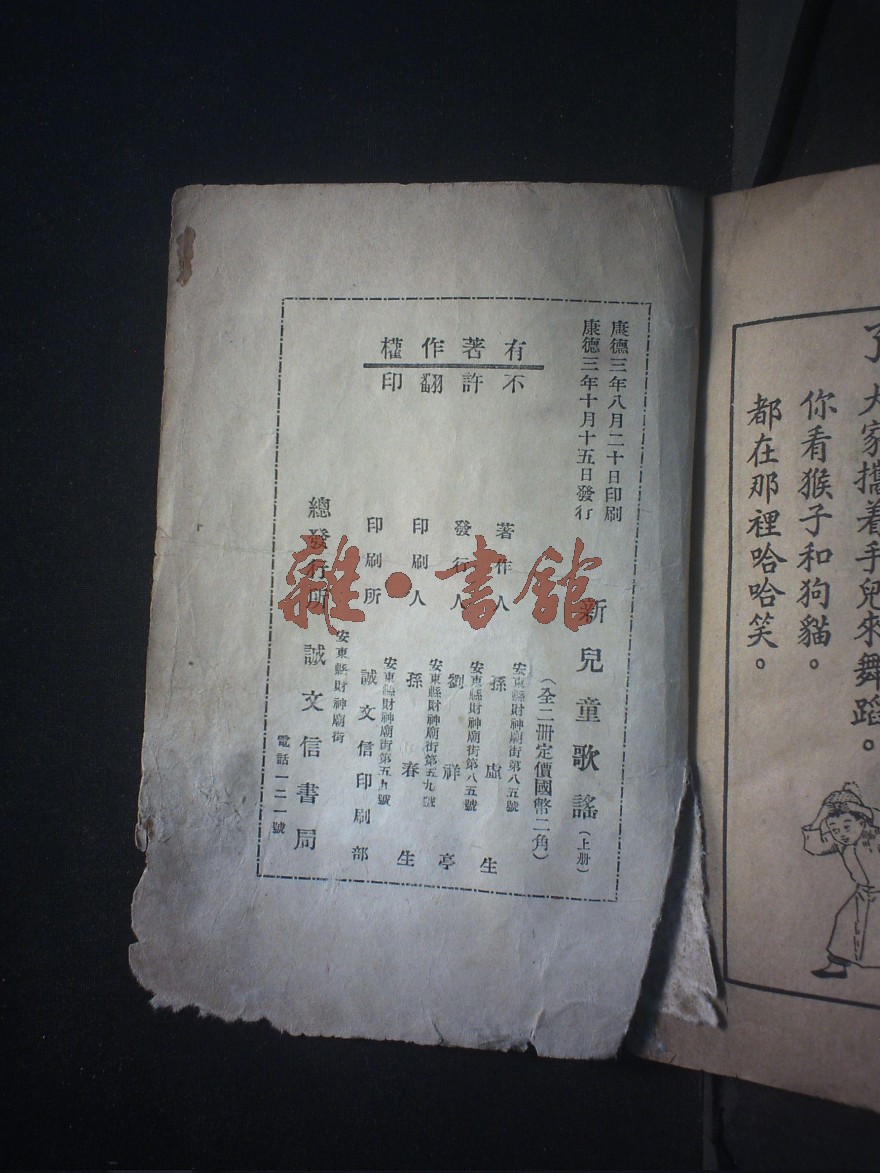 康德三年八月二十日印刷
康德三年十月十五日發行
有著作權
不許翻印
新兒童歌謠(上册)
(全二册定價國幣二角)
著作人
安東縣財神廟街第八五號
孫虛生
發行人
安東縣財神廟街第八五號
劉祥亭
印刷人
安東縣財神廟街第五九號
孫春生
印刷所
安東縣財神廟街第五九號
誠文信印刷部
總發行所
安東縣財神廟街
誠文信書局
電話一二一號
雜·書館
大家攜着手兒來舞蹈。
你看猴子和狗貓。
都在那裡哈哈笑。